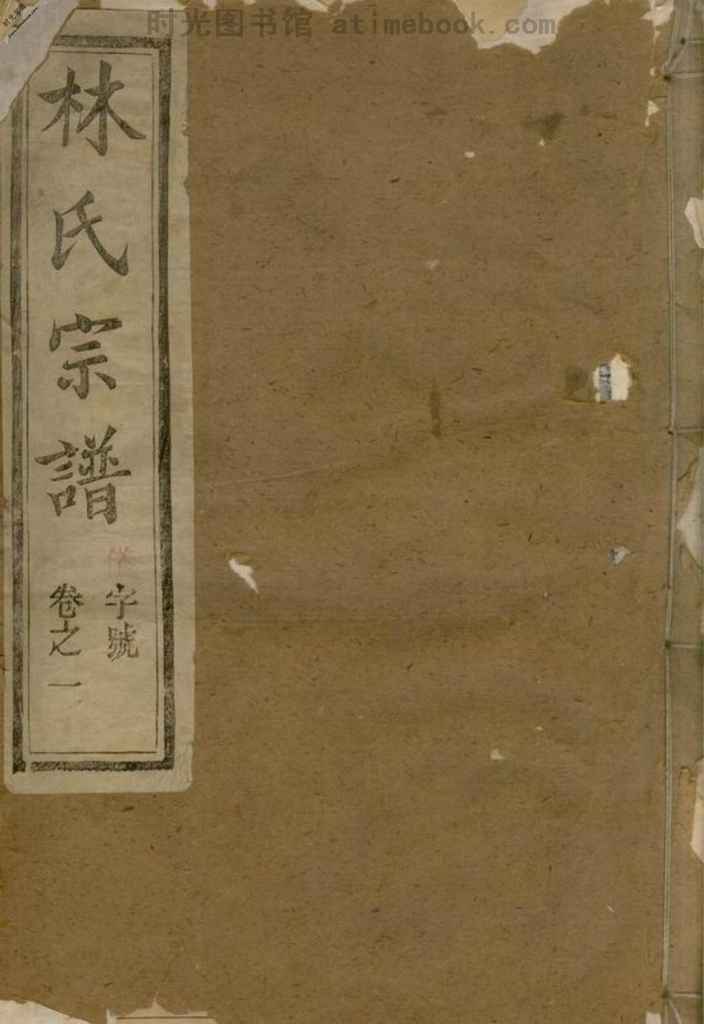 时光图书馆 atimebook.com
林氏宗譜
字號
卷之一